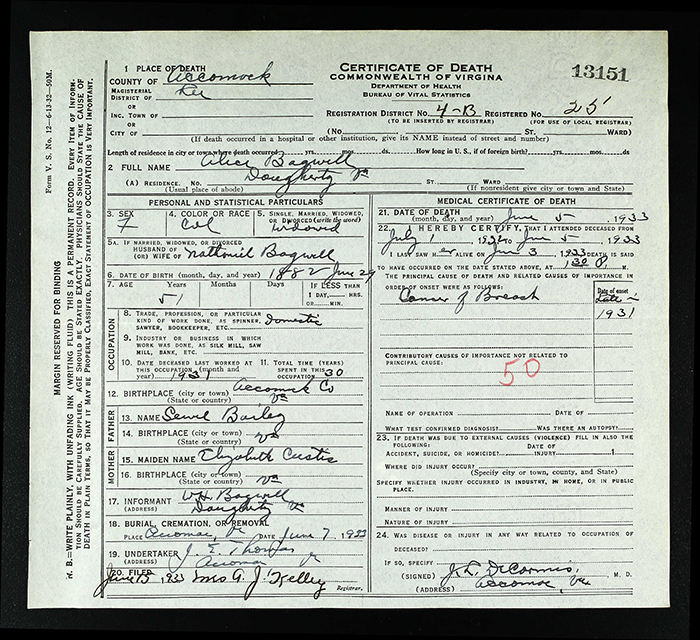 Form V. S. No. 12—6-13-32—50M.
MARGIN RESERVED FOR BINDING
N. B.—WRITE PLAINLY, WITH UNFADING INK (WRITING FLUID) THIS IS A PERMANENT RECORD. EVERY ITEM OF INFORMATION SHOULD BE CAREFULLY SUPPLIED. AGE SHOULD BE STATED EXACTLY. PHYSICIANS SHOULD STATE THE CAUSE OF DEATH IN PLAIN TERMS, SO THAT IT MAY BE PROPERLY CLASSIFIED. EXACT STATEMENT OF OCCUPATION IS VERY IMPORTANT.
1 PLACE OF DEATH
COUNTY OF Accomack
MAGISTERIAL DISTRICT OF Lee
OR
INC. TOWN OF
OR
CITY OF
CERTIFICATE OF DEATH
COMMONWEALTH OF VIRGINA
DEPARTMENT OF HEALTH
BUREAU OF VITAL STATISTICS
13151
REGISTRATION DISTRICT NO. 4-B REGISTERED NO. 25
(TO BE INSERTED BY REGISTRAR) (FOR USE OF LOCAL REGISTRAR)
(No. ST. WARD)
(If death occurred in a hospital or other institution, give its NAME instead of street and number)
Length of residence in city or town where death occurred yrs. mos. ds. How long in U. S., if of foreign birth? yrs. mos. ds
2 FULL NAME Alice Bagwell
(A) RESIDENCE. NO. Daugherty Va ST. WARD
(Usual place of abode) (If nonresident give city or town and State)
PERSONAL AND STATISTICAL PARTICULARS
3. SEX F
4. COLOR OR RACE Col
5. SINGLE, MARRIED, WIDOWED, OR DIVORCED (write the word) Widowed
5A. IF MARRIED, WIDOWED, OR DIVORCED
HUSBAND OF
(OR) WIFE OF Nathaniel Bagwell
6. DATE OF BIRTH (month, day, and year) 1882 June 29
7. AGE Years Months Days IF LESS THAN
51 1 DAY, HRS.
OR MIN.
OCCUPATION
8. TRADE, PROFESSION, OR PARTICULAR KIND OF WORK DONE, AS SPINNER, SAWYER, BOOKKEEPER, ETC. Domestic
9. INDUSTRY OR BUSINESS IN WHICH WORK WAS DONE, AS SILK MILL, SAW MILL, BANK, ETC.
10. DATE DECEASED LAST WORKED AT THIS OCCUPATION (month and year) 1931
11. TOTAL TIME (YEARS) SPENT IN THIS OCCUPATION 30
12. BIRTHPLACE (city or town) Accomack Co
(State or country) Va
FATHER
13. NAME Sewel Bailey
14. BIRTHPLACE (city or town)
(State or country) Va
MOTHER
15. MAIDEN NAME Elizabeth Custis
16. BIRTHPLACE (city or town)
(State or country) Va
17. INFORMANT W.H. Bagwell
(ADDRESS) Daugherty Va
18. BURIAL, CREMATION, OR REMOVAL
PLACE Accomac, Va DATE June 7, 1933
19. UNDERTAKER J. E. Thomas
(ADDRESS) Accomac Va
20. FILED June 15 1933 Mrs G. J. Kelley
Registrar.
MEDICAL CERTIFICATE OF DEATH
21. DATE OF DEATH (month, day, and year) June 5, 1933
22. I HEREBY CERTIFY, THAT I ATTENDED DECEASED FROM
July 1 1932 TO June 5 1933
I LAST SAW H er ALIVE ON June 3, 1933 DEATH IS SAID
TO HAVE OCCURRED ON THE DATE STATED ABOVE, AT 1:30 P. M.
THE PRINCIPAL CAUSE OF DEATH AND RELATED CAUSES OF IMPORTANCE IN ORDER OF ONSET WERE AS FOLLOWS:
Cancer of Breast
Date of onset
Late in
1931
CONTRIBUTORY CAUSES OF IMPORTANCE NOT RELATED TO PRINCIPAL CAUSE:
50
NAME OF OPERATION DATE OF
WHAT TEST CONFIRMED DIAGNOSIS? WAS THERE AN AUTOPSY?
23. IF DEATH WAS DUE TO EXTERNAL CAUSES (VIOLENCE) FILL IN ALSO THE FOLLOWING:
ACCIDENT, SUICIDE, OR HOMICIDE? DATE OF INJURY 1
WHERE DID INJURY OCCUR?
(Specify city or town, county, and State)
SPECIFY WHETHER INJURY OCCURRED IN INDUSTRY, IN HOME, OR IN PUBLIC PLACE.
MANNER OF INJURY
NATURE OF INJURY
24. WAS DISEASE OR INJURY IN ANY WAY RELATED TO OCCUPATION OF DECEASED?
IF SO, SPECIFY
(SIGNED) J.L. DeCormis, M. D.
(ADDRESS) Accomac, Va